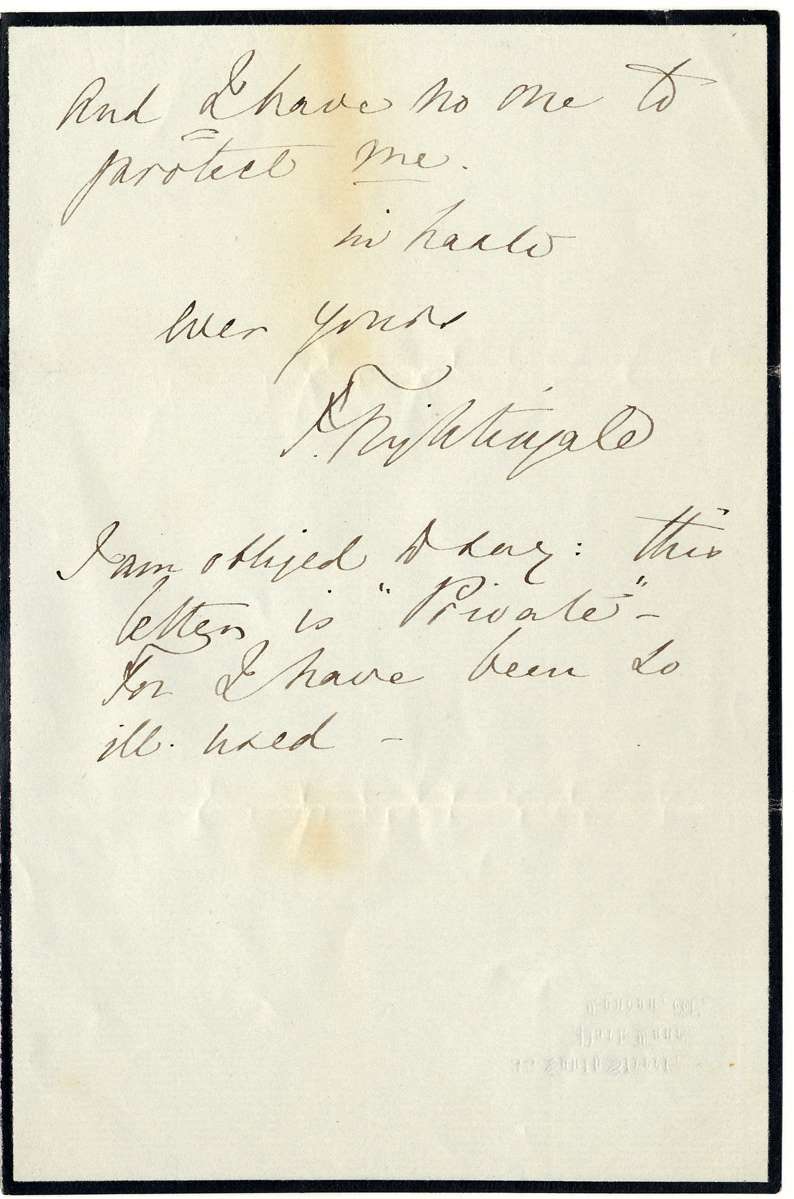 And I have no one to
protect me.
in haste
ever yours
F. Nightingale
I am obliged to say: this
letter is "Private" –
For I have been so
ill used –